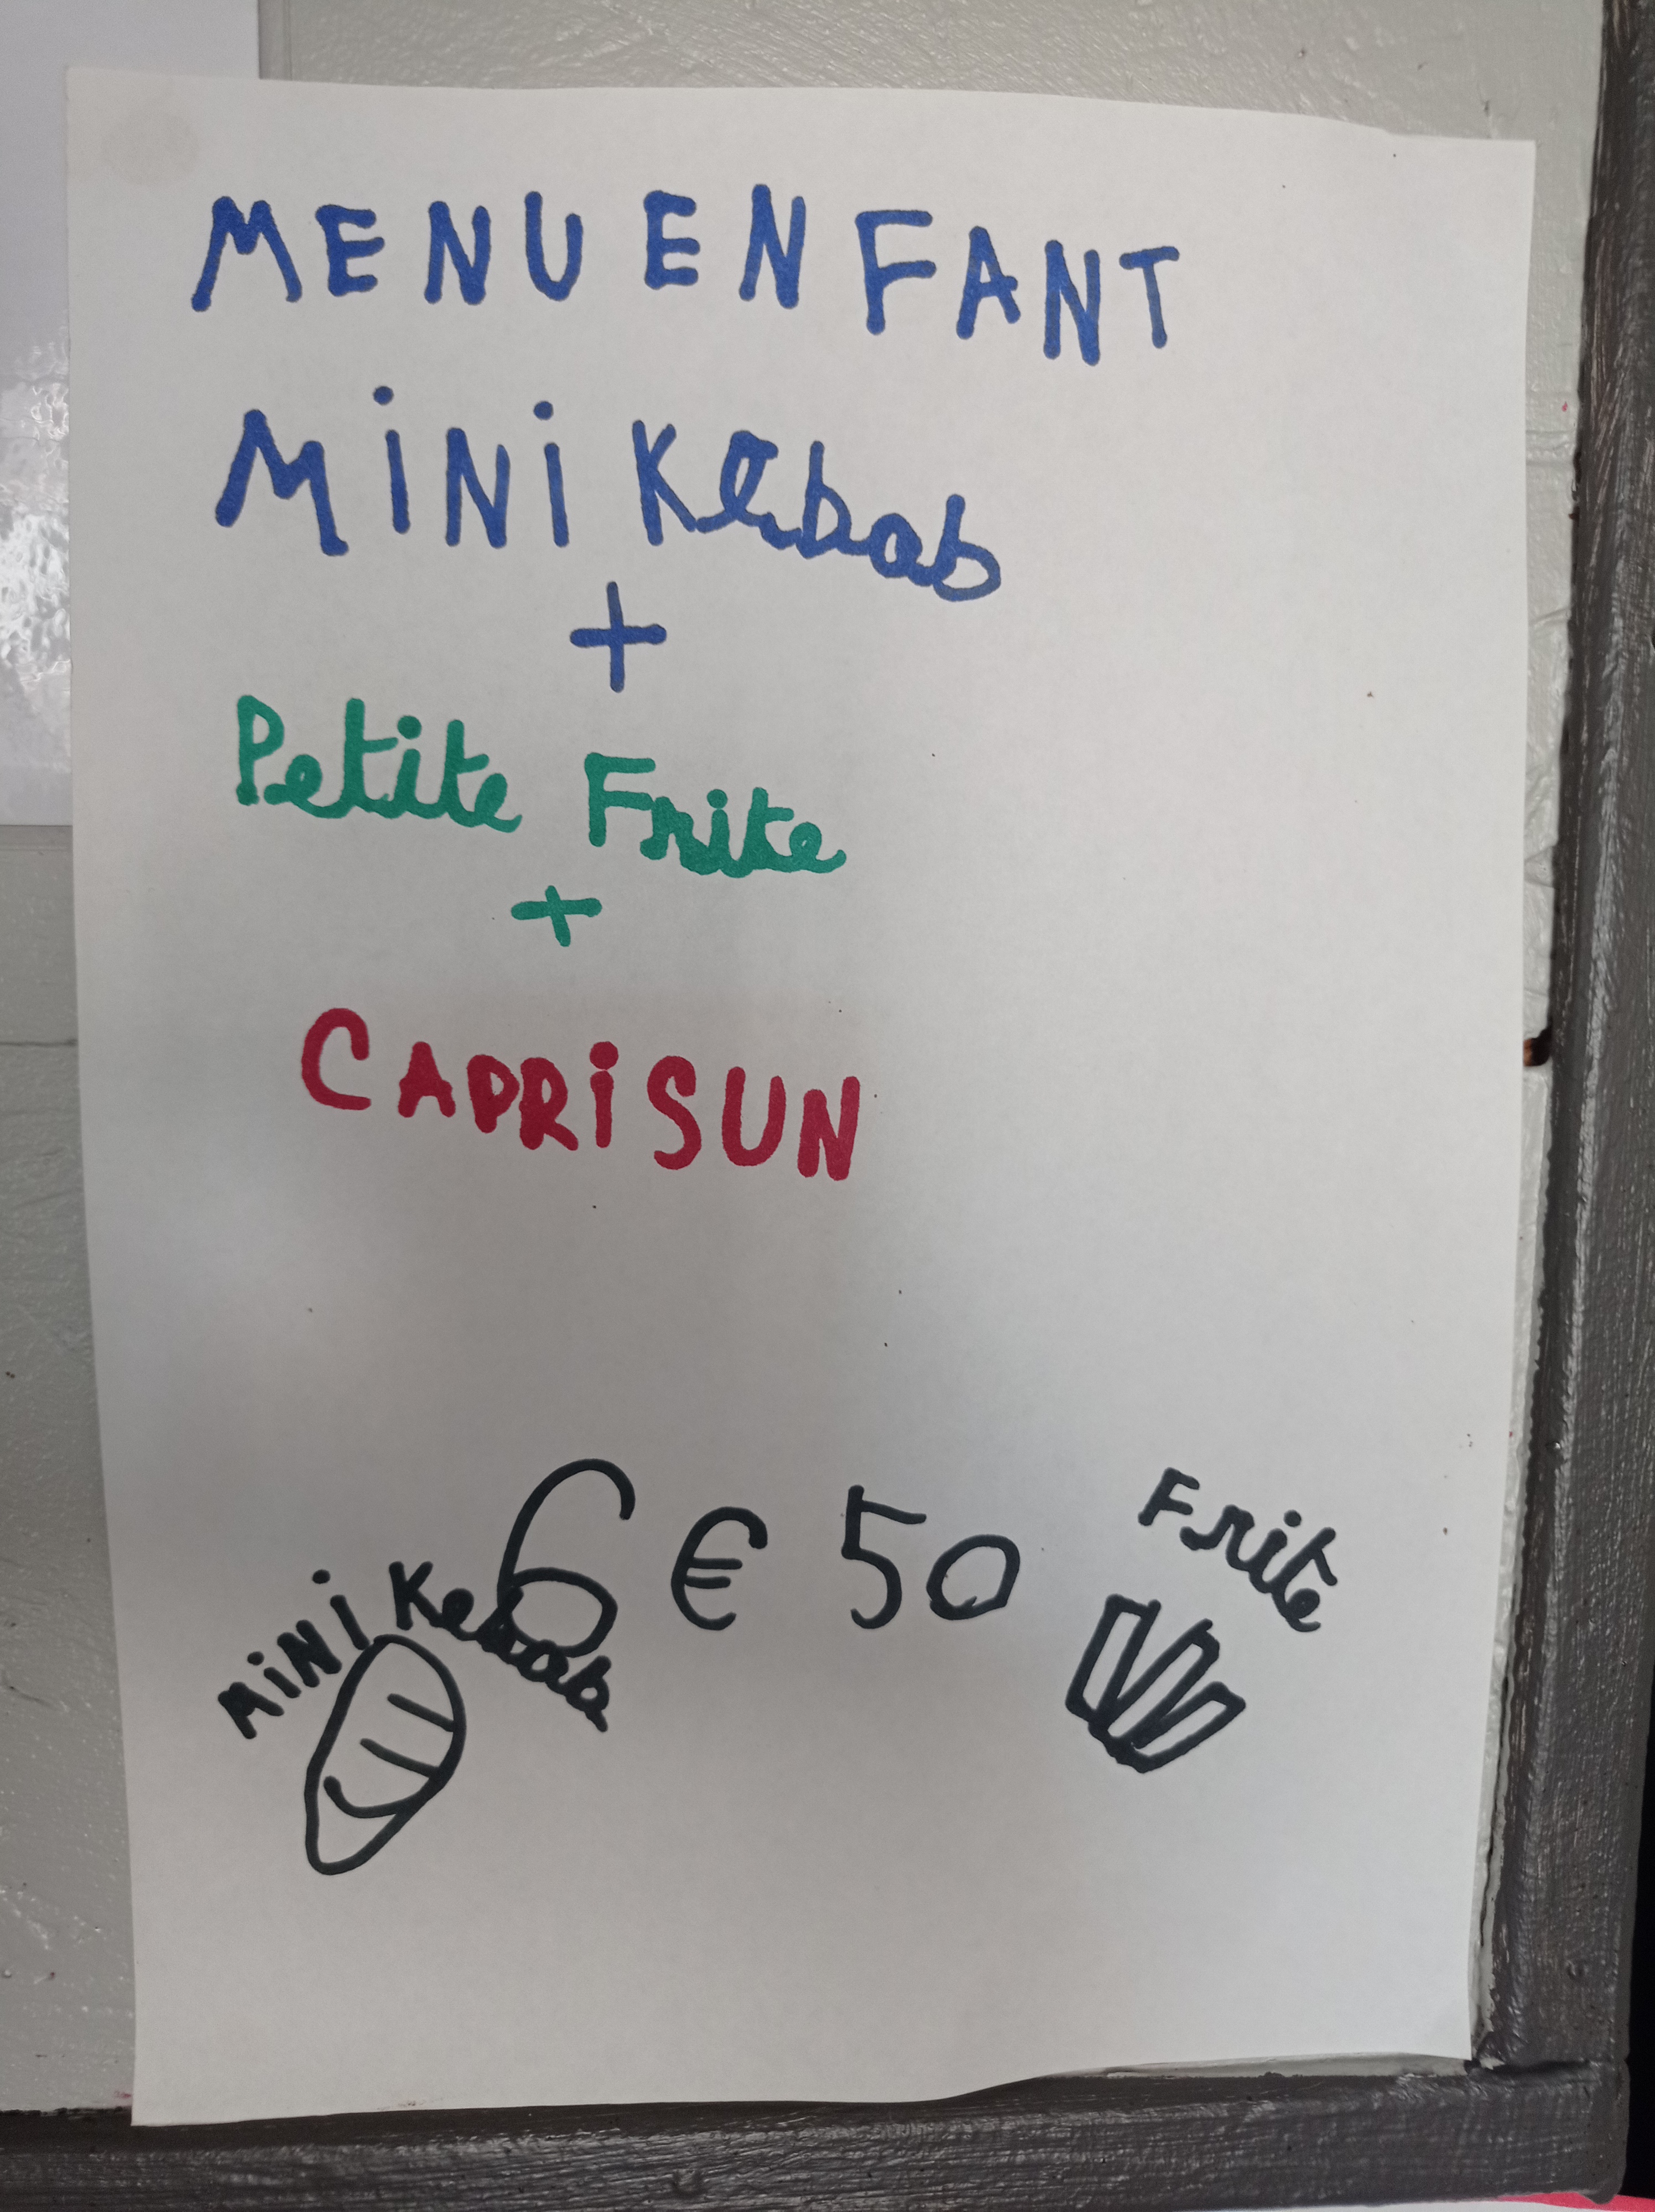 MENU ENFANT
MiNi Kebab
+
Petite Frite
+
CAPRiSUN
6€50
MiNi Kebab
Frite